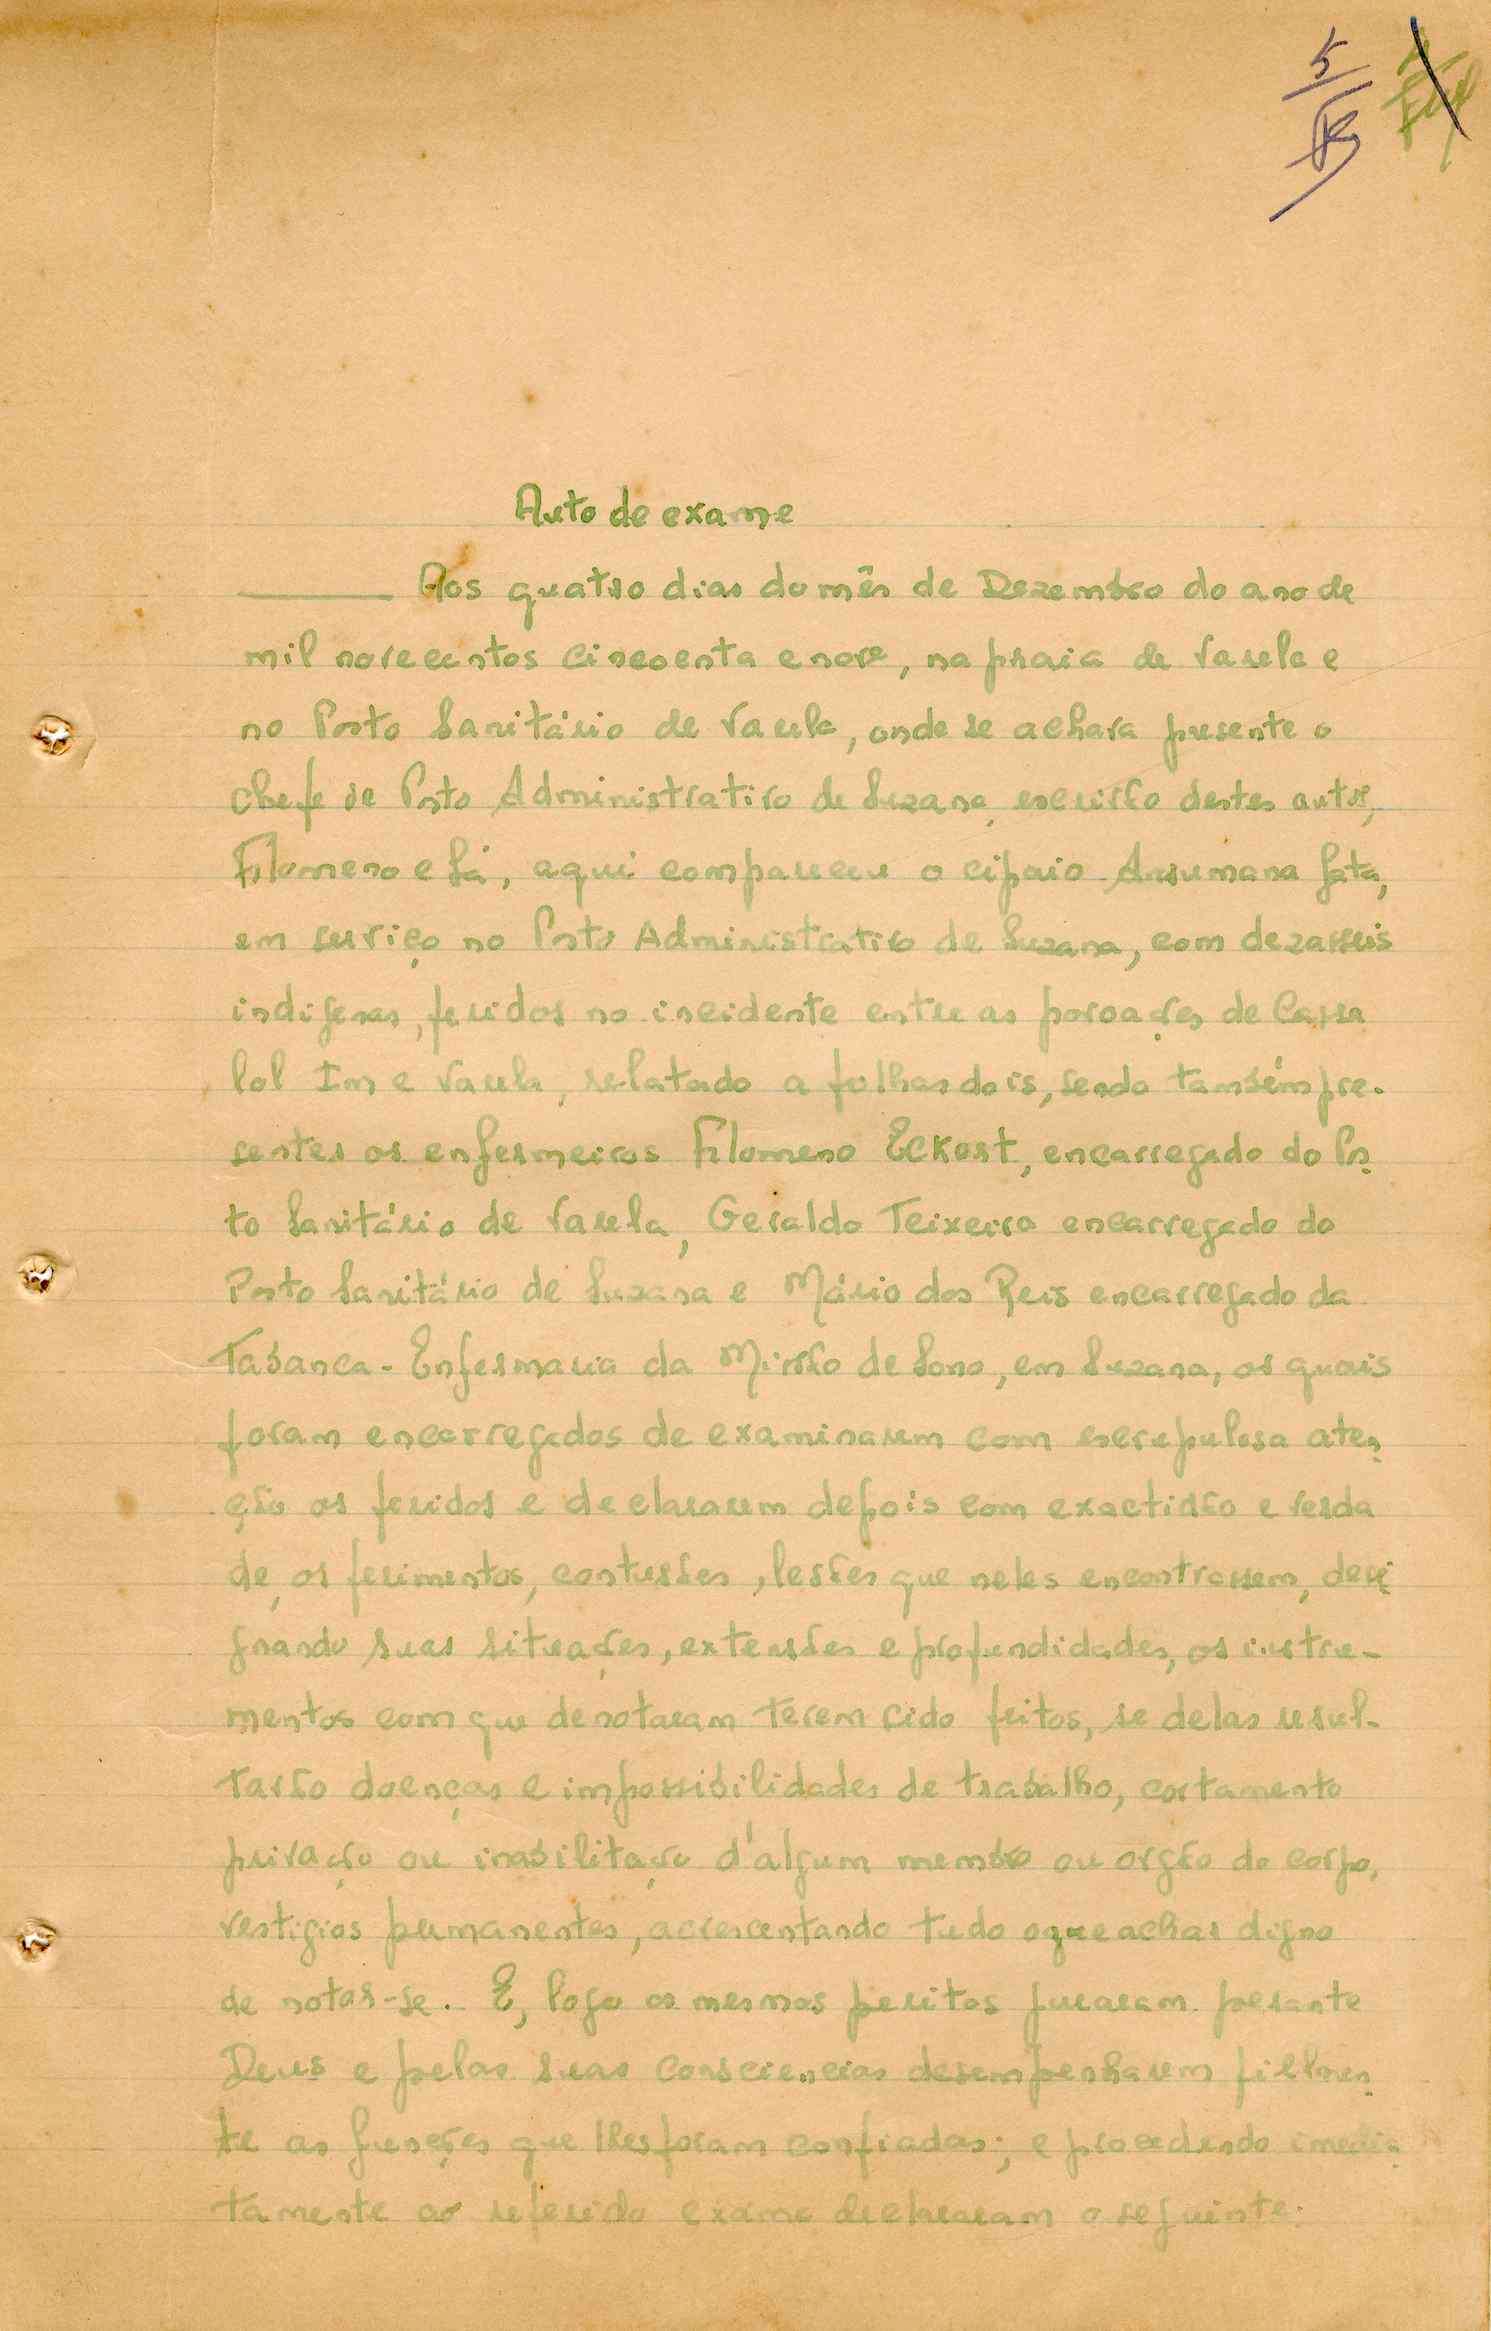 5
Auto de exame
Aos quatro dias do mês de Dezembro do ano de
mil novecentos cincoenta e nove, na praia de Varela e
no Posto Sanitário de Varela, onde se achava presente o
chefe de Posto Administrativo de Suzana, escrivão destes autos,
Filomeno e Sá, aqui compareceu o cipaio Ansumana Sata,
em serviço no Posto Administrativo de Suzana, com dezasseis
indigenas, feridos no incidente entre as povoações de Cassa
lol Im e Varela, relatado a folhas dois, sendo também pre-
sentes os enfermeiros Filomeno Eckost, encarregado do Pos
to Sanitário de Varela, Geraldo Teixeira encarregado do
Posto Sanitário de Suzana e Mário dos Reis encarregado da
Tabanca-Enfermaria da Missão de Sono, em Suzana, os quais
foram encarregados de examinarem com escrupulosa aten
ção os feridos e declararem depois com exactidão e verda
de, os ferimentos, contusões, lesões que neles encontrassem, desi
gnando suas situações, extensões e profundidades, os instru-
mentos com que denotaram terem sido feitos, se delas resul-
tarão doenças e impossibilidades de trabalho, cortamento
privação ou inabilitação d'algum membro ou orgão do corpo,
vestigios permanentes, acrescentando tudo o que achar digno
de notar-se. E, logo os mesmos peritos juraram perante
Deus e pelas suas consciencias desempenharem fielmen
te as funções que lhes foram confiadas; e procedendo imedia
tamente ao referido exame declararam o seguinte: